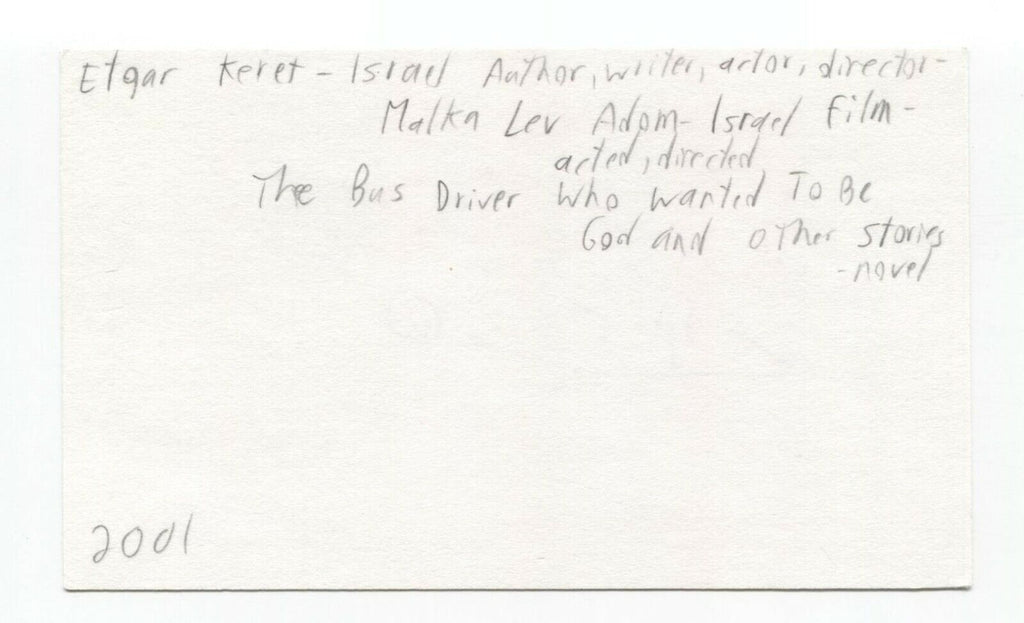 Etgar Keret - Israel Author, writer, actor, director -
Malka Lev Adom - Israel Film -
acted, directed
The Bus Driver Who Wanted To Be
God and other stories
- novel
2001